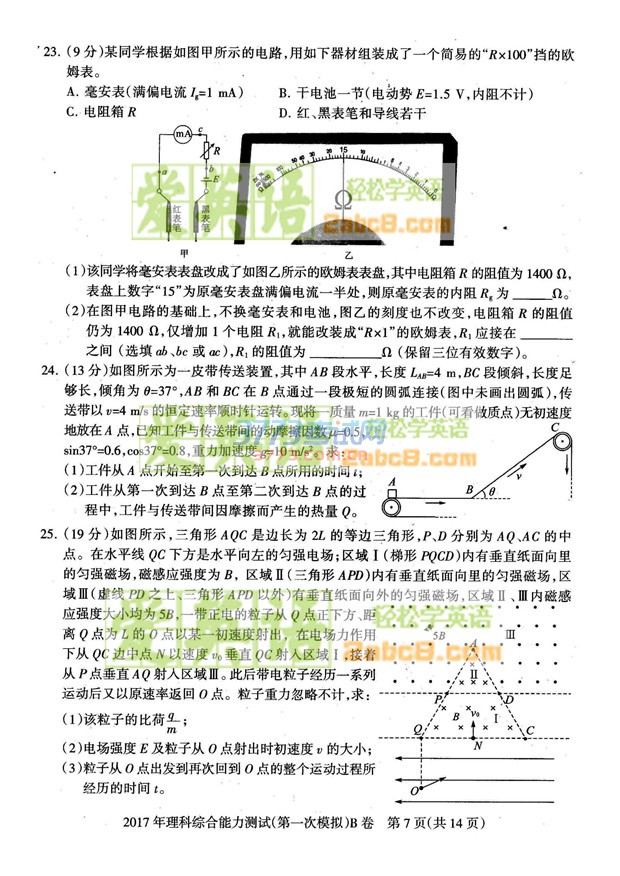 23. (9 分)某同学根据如图甲所示的电路,用如下器材组装成了一个简易的“R×100”挡的欧
姆表。
A. 毫安表(满偏电流 Ig=1 mA)
B. 干电池一节(电动势 E=1.5 V,内阻不计)
C. 电阻箱 R
D. 红、黑表笔和导线若干
mA
c
R
a
b
E
红表笔
黑表笔
甲
15
Ω
乙
(1)该同学将毫安表表盘改成了如图乙所示的欧姆表表盘,其中电阻箱 R 的阻值为 1400 Ω,
表盘上数字“15”为原毫安表盘满偏电流一半处,则原毫安表的内阻 Rg 为 ______Ω。
(2)在图甲电路的基础上,不换毫安表和电池,图乙的刻度也不改变,电阻箱 R 的阻值
仍为 1400 Ω,仅增加 1 个电阻 R1,就能改装成“R×1”的欧姆表,R1 应接在 ______
之间 (选填 ab、bc 或 ac),R1 的阻值为 ______ Ω (保留三位有效数字)。
24. (13 分)如图所示为一皮带传送装置,其中 AB 段水平,长度 LAB=4 m,BC 段倾斜,长度足
够长,倾角为 θ=37°,AB 和 BC 在 B 点通过一段极短的圆弧连接(图中未画出圆弧),传
送带以 v=4 m/s 的恒定速率顺时针运转。现将一质量 m=1 kg 的工件(可看做质点)无初速度
地放在 A 点,已知工件与传送带间的动摩擦因数 μ=0.5,
sin37°=0.6,cos37°=0.8,重力加速度 g=10 m/s²。求:
(1)工件从 A 点开始至第一次到达 B 点所用的时间 t;
(2)工件从第一次到达 B 点至第二次到达 B 点的过
程中,工件与传送带间因摩擦而产生的热量 Q。
A
B
C
θ
v
25. (19 分)如图所示,三角形 AQC 是边长为 2L 的等边三角形,P、D 分别为 AQ、AC 的中
点。在水平线 QC 下方是水平向左的匀强电场;区域Ⅰ(梯形 PQCD)内有垂直纸面向里
的匀强磁场,磁感应强度为 B, 区域Ⅱ(三角形 APD)内有垂直纸面向里的匀强磁场,区
域Ⅲ(虚线 PD 之上、三角形 APD 以外)有垂直纸面向外的匀强磁场,区域Ⅱ、Ⅲ内磁感
应强度大小均为 5B,一带正电的粒子从 Q 点正下方、距
离 Q 点为 L 的 O 点以某一初速度射出,在电场力作用
下从 QC 边中点 N 以速度 v0 垂直 QC 射入区域Ⅰ,接着
从 P 点垂直 AQ 射入区域Ⅲ。此后带电粒子经历一系列
运动后又以原速率返回 O 点。粒子重力忽略不计,求:
(1)该粒子的比荷 q/m;
(2)电场强度 E 及粒子从 O 点射出时初速度 v 的大小;
(3)粒子从 O 点出发到再次回到 O 点的整个运动过程所
经历的时间 t。
5B
Ⅲ
A
Ⅱ
P
D
B
v0
Ⅰ
Q
N
C
O
2017 年理科综合能力测试(第一次模拟)B 卷 第 7 页(共 14 页)
爱英语
轻松学英语
2abc8.com
爱英语
轻松学英语
2abc8.com
爱英语
轻松学英语
2abc8.com